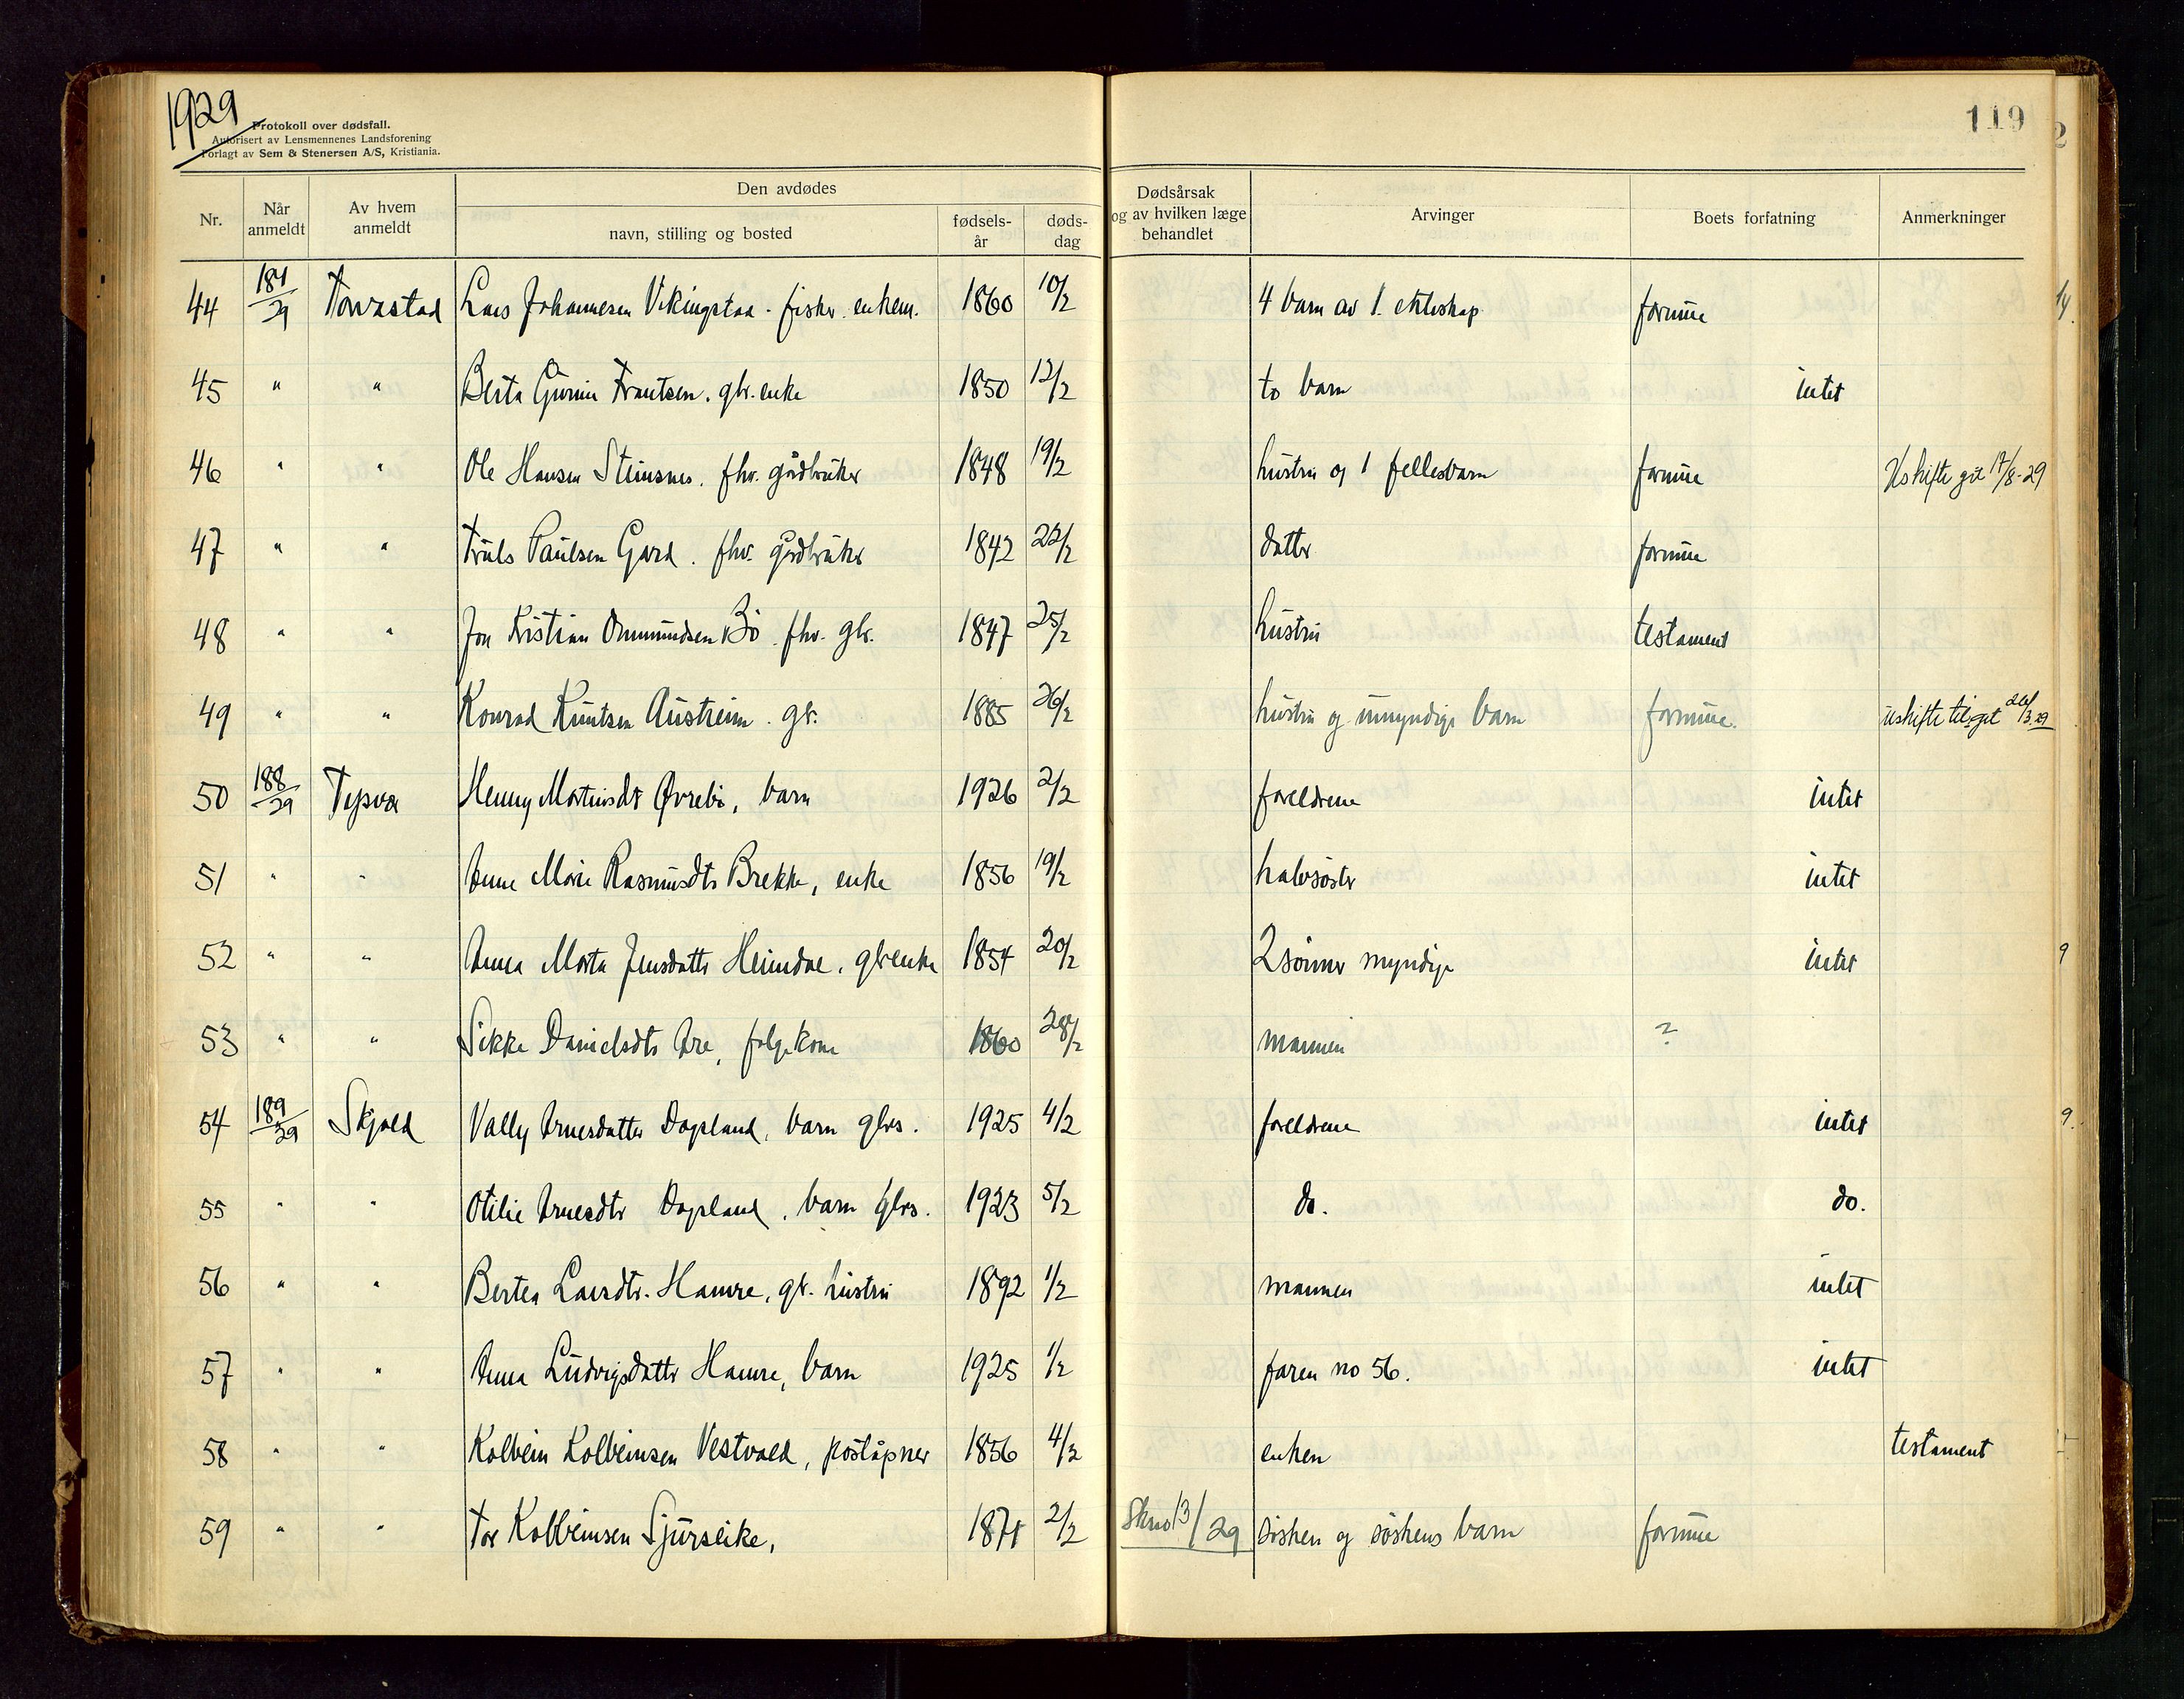 1929
Protokoll over dødsfall.
Autorisert av Lensmennenes Landsforening
Forlagt av Sem & Stenersen A/S, Kristiania.
119
Nr. Når anmeldt Av hvem anmeldt Den avdødes navn, stilling og bosted fødsels-år døds-dag Dødsårsak og av hvilken læge behandlet Arvinger Boets forfatning Anmerkninger
44 187/29 Torvastad Lars Johannesen Vikingstad. fisker. enkem. 1860 10/2 4 barn av 1. ekteskap formue
45 " " Berta Gurine Frantsen. gbr. enke 1850 12/2 to barn intet
46 " " Ole Hansen Steinsnes. fhv. gårdbruker 1848 19/2 hustru og 1 fellesbarn formue Uskifte git 17/8-29
47 " " Truls Paulsen Gard. fhv. gårdbruker 1842 22/2 datter formue
48 " " Jon Kristian Ommundsen Bö. fhv. gbr. 1847 25/2 hustru testament
49 " " Konrad Knutsen Austreim. gbr. 1885 26/2 hustru og umyndige barn formue. uskifte til. git 26/3.29
50 188/29 Tysvær Henny Martinsdtr Øvrebö, barn 1926 2/2 foreldrene intet
51 " " Anne Marie Rasmusdtr Brekke, enke 1856 19/2 halvsöster intet
52 " " Anna Marta Jensdatter Heimdal. gbr enke 1854 20/2 2 sönner myndige intet
53 " " Sikke Danielsdtr Are, folgekone 1860 28/2 mannen ?
54 189/29 Skjold Vally Arnesdatter Dagsland, barn gbrs. 1925 4/2 foreldrene intet
55 " " Otilie Arnesdtr Dagsland, barn gbrs. 1923 5/2 do. do.
56 " " Bertea Larsdtr. Hamre, gbr. hustru 1892 1/2 mannen intet
57 " " Anna Ludvigsdatter Hamre, barn 1925 1/2 faren no 56. intet
58 " " Kolbein Kolbeinsen Vestvold, poståpner 1856 4/2 enken testament
59 " " Tor Kolbeinsen Sjurseike, 1871 2/2 13/29 söshen og söskens barn formue